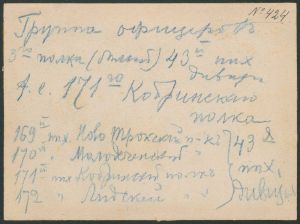 № 424
Группа офицеров
3го полка (былый) 43й пих
дивизи
ф. с. 171го Кобринскаго
полка
169й пх. Ново Трокский п-к
170й " Молодечанский "
171й пх Кобринский полкъ
172 " Лидский "
43й
пих,
дивиз